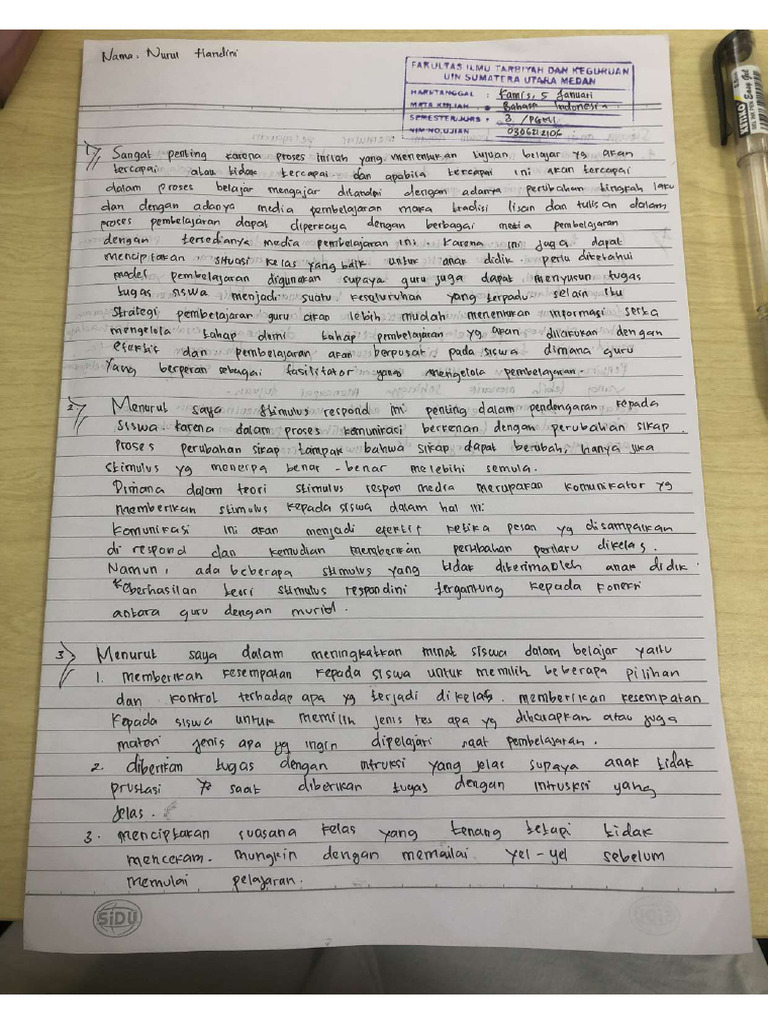 Nama : Nurul Handini
FAKULTAS ILMU TARBIYAH DAN KEGURUAN
UIN SUMATERA UTARA MEDAN
HARI/TANGGAL : Kamis, 5 Januari
MATA KULIAH : Bahasa Indonesia
SEMESTER/JURS : 3 /PGMI
NIM/NO.UJIAN : 0306212106
1) Sangat penting karena proses inilah yang menentukan tujuan belajar yg akan
tercapai atau tidak tercapai dan apabila tercapai ini akan tercapai
dalam proses belajar mengajar ditandai dengan adanya perubahan tingkah laku
dan dengan adanya media pembelajaran maka tradisi lisan dan tulisan dalam
proses pembelajaran dapat diperkaya dengan berbagai media pembelajaran
dengan tersedianya media pembelajaran ini. Karena ini juga dapat
menciptakan situasi kelas yang baik untuk anak didik. perlu diketahui
model pembelajaran digunakan supaya guru juga dapat menyusun tugas
tugas siswa menjadi suatu kesaluruhan yang terpadu selain itu
strategi pembelajaran guru akan lebih mudah menentukan informasi serta
mengelola tahap demi tahap pembelajaran yg akan dilakukan dengan
efektif dan pembelajaran akan berpusat pada siswa dimana guru
yang berperan sebagai fasilitator yang mengelola pembelajaran.
2) Menurut saya stimulus respond ini penting dalam pendengaran kepada
siswa. karena dalam proses komunikasi berkenan dengan perubahan sikap.
Proses perubahan sikap tampak bahwa sikap dapat berubah, hanya jika
stimulus yg menerpa benar-benar melebihi semula.
Dimana dalam teori stimulus respon media merupakan komunikator yg
memberikan stimulus kepada siswa dalam hal ini.
Komunikasi ini akan menjadi efektif ketika pesan yg disampaikan
di respond dan kemudian memberikan perubahan perilaku dikelas.
Namun, ada beberapa stimulus yang tidak diterima oleh anak didik.
Keberhasilan teori stimulus respond ini tergantung kepada koneksi
antara guru dengan murid.
3) Menurut saya dalam meningkatkan minat siswa dalam belajar yaitu
1. memberikan kesempatan kepada siswa untuk memilih beberapa pilihan
dan kontrol terhadap apa yg terjadi dikelas. memberikan kesempatan
kepada siswa untuk memilih jenis tes apa yg diharapkan atau juga
materi jenis apa yg ingin dipelajari saat pembelajaran.
2. diberikan tugas dengan intruksi yang jelas supaya anak tidak
prustasi saat diberikan tugas dengan intruksi yang
jelas.
3. menciptakan suasana kelas yang tenang tetapi tidak
mencekam. mungkin dengan memailai yel-yel sebelum
memulai pelajaran.
SiDU